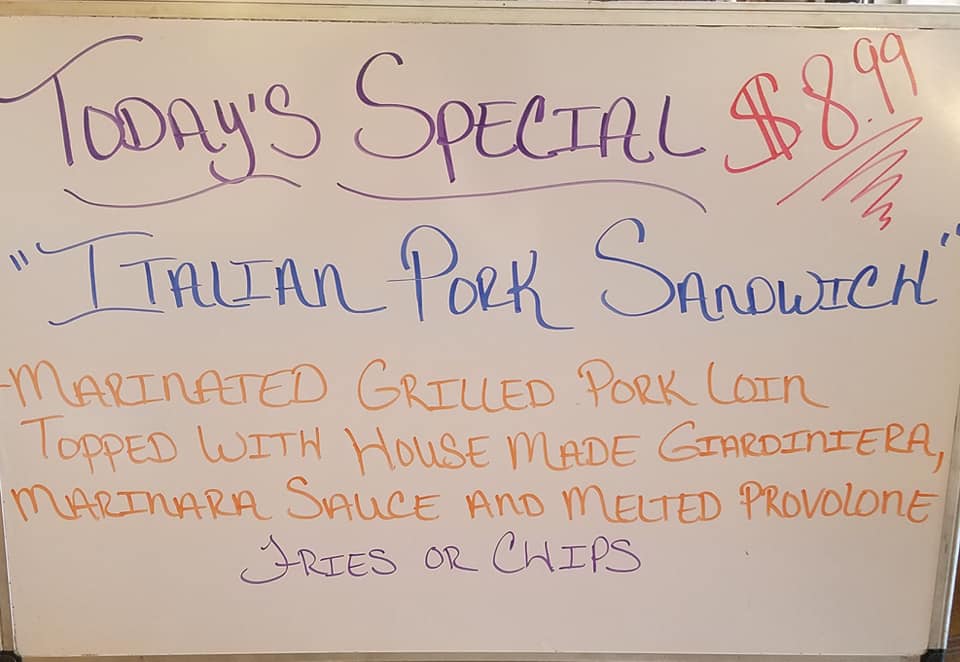 TODAY'S SPECIAL $8.99
"ITALIAN PORK SANDWICH"
-MARINATED GRILLED PORK LOIN
TOPPED WITH HOUSE MADE GIARDINIERA,
MARINARA SAUCE AND MELTED PROVOLONE
FRIES OR CHIPS